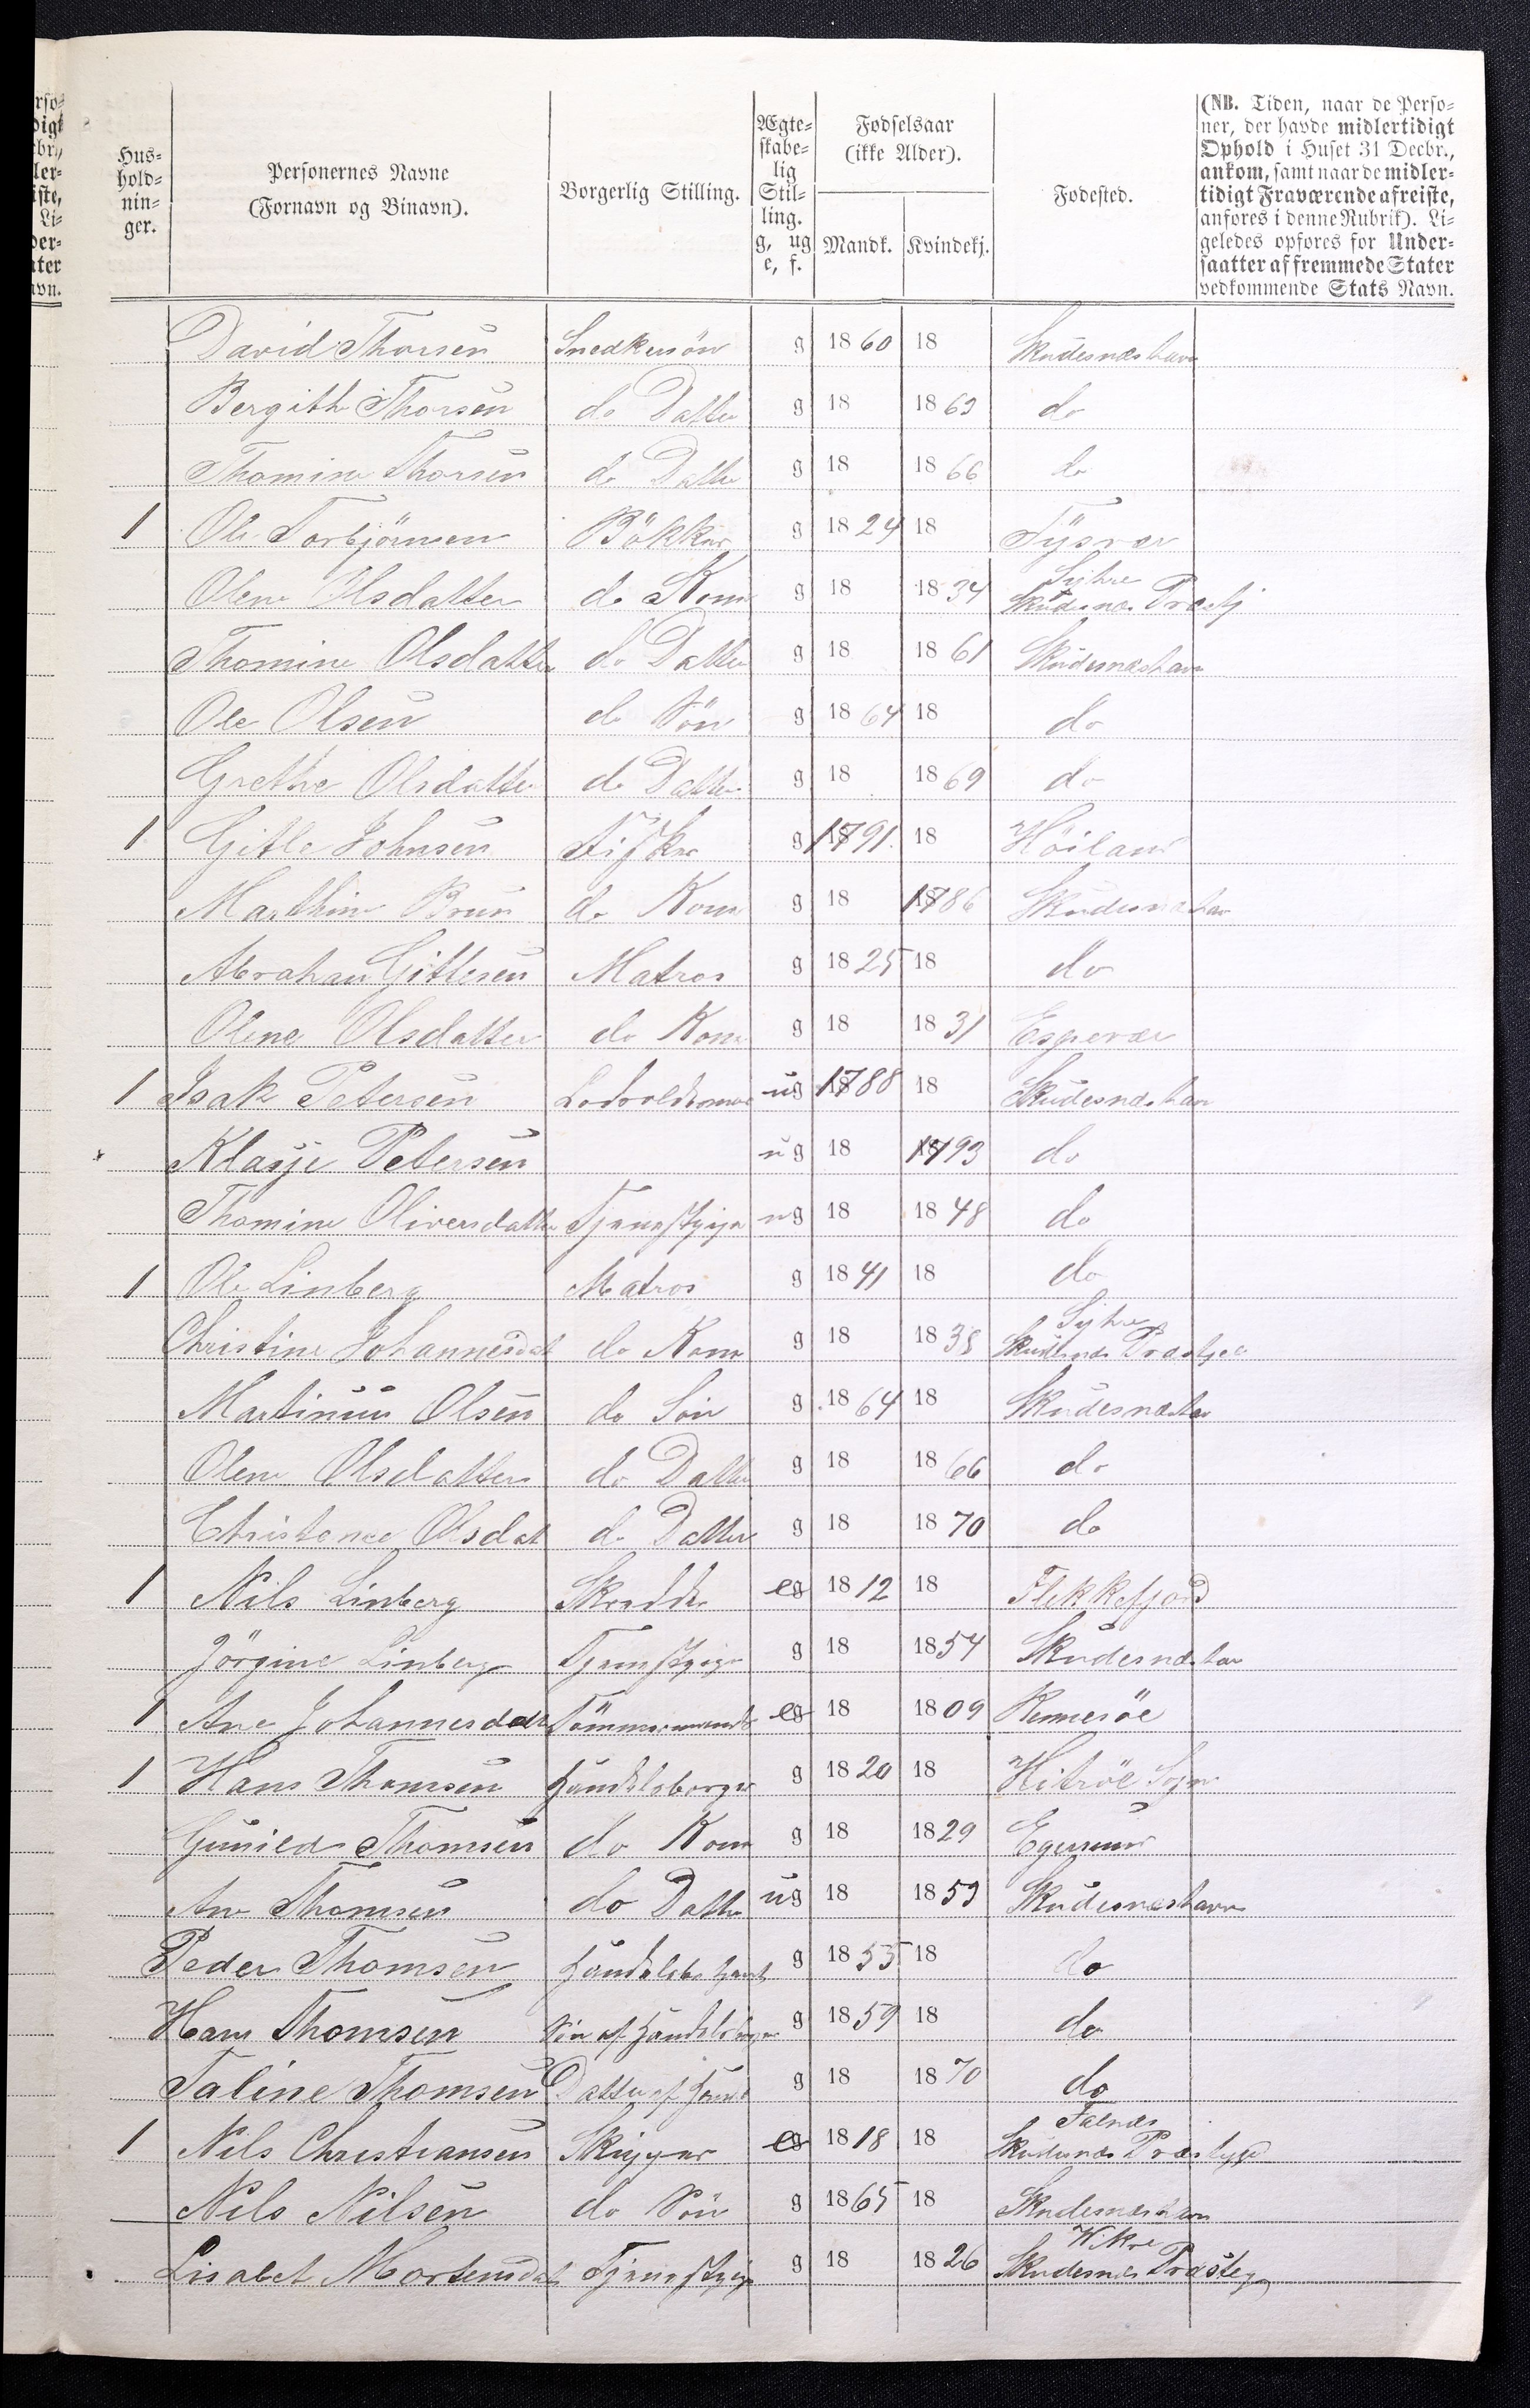 Hus-
hold-
nin-
ger.
Personernes Navne
(Fornavn og Binavn).
Borgerlig Stilling.
Ægte-
skabe-
lig
Stil-
ling.
g, ug
e, f.
Fødselsaar
(ikke Alder).
Mandk. Kvindekj.
Fødested.
(NB. Tiden, naar de Perso-
ner, der havde midlertidigt
Ophold i Huset 31 Decbr.,
ankom, samt naar de midler-
tidigt Fraværende afreiste,
anføres i denne Rubrik). Li-
geledes opføres for Under-
saatter af fremmede Stater
vedkommende Stats Navn.
David Thorsen Snedkersön g 1860 18 Skudesnæshavn
Bergithe Thorsen do Datter g 18 1863 do
Thomine Thorsen do Datter g 18 1866 do
1 Ole Torbjörnsen Bökker g 1824 18 Tysvær
Olene Olsdatter do Kone g 18 1834 Syhre Skudesnæs Præstj
Thomine Olsdatter do Datter g 18 1861 Skudesnæshavn
Ole Olsen do Sön g 1864 18 do
Grethe Olsdatter do Datter g 18 1869 do
1 Gitle Johnsen Fisker g 1791 18 Höiland
Marthine Brun do Kone g 18 1786 Skudesnæshav
Abraham Gitlesen Matros g 1825 18 do
Olene Olsdatter do Kone g 18 1831 Espevær
1 Isak Petersen ug 1788 18 Skudesnæshavn
Klasje Petersen ug 18 1793 do
Thomine Oliversdatter Tjenestpige ug 18 1848 do
1 Ole Linberg Matros g 1841 18 do
Christine Johannesdat do Kone g 18 1838 Syhre Skudesnæs Præstje
Martinius Olsen do Sön g 1864 18 Skudesnæshav
Olene Olsdatter do Datter g 18 1866 do
Christence Olsdat do Datter g 18 1870 do
1 Nils Linberg Skrædder eg 1812 18 Flekkefjord
Jörgine Linberg Tjenestpige g 18 1854 Skudesnæshav
1 Ane Johannesdatr Tömmermands eg 18 1809 Rennesöe
1 Hans Thomsen Handelsborger g 1820 18 Hitröe Sogn
Gunild Thomsen do Kone g 18 1829 Egersund
Ane Thomsen do Datter ug 18 1853 Skudesnæshavn
Peder Thomsen g 1855 18 do
Hans Thomsen Sön af Handelsborger g 1859 18 do
Taline Thomsen Datter af Hand g 18 1870 do
1 Nils Christiansen Skipper eg 1818 18 Falnæs Skudesnæs Præstegje
Nils Nilsen do Sön g 1865 18 Skudesnæshavn
Lisabet Mortensdat Tjenestpige g 18 1826 Wikre Skudesnæs Præsteg